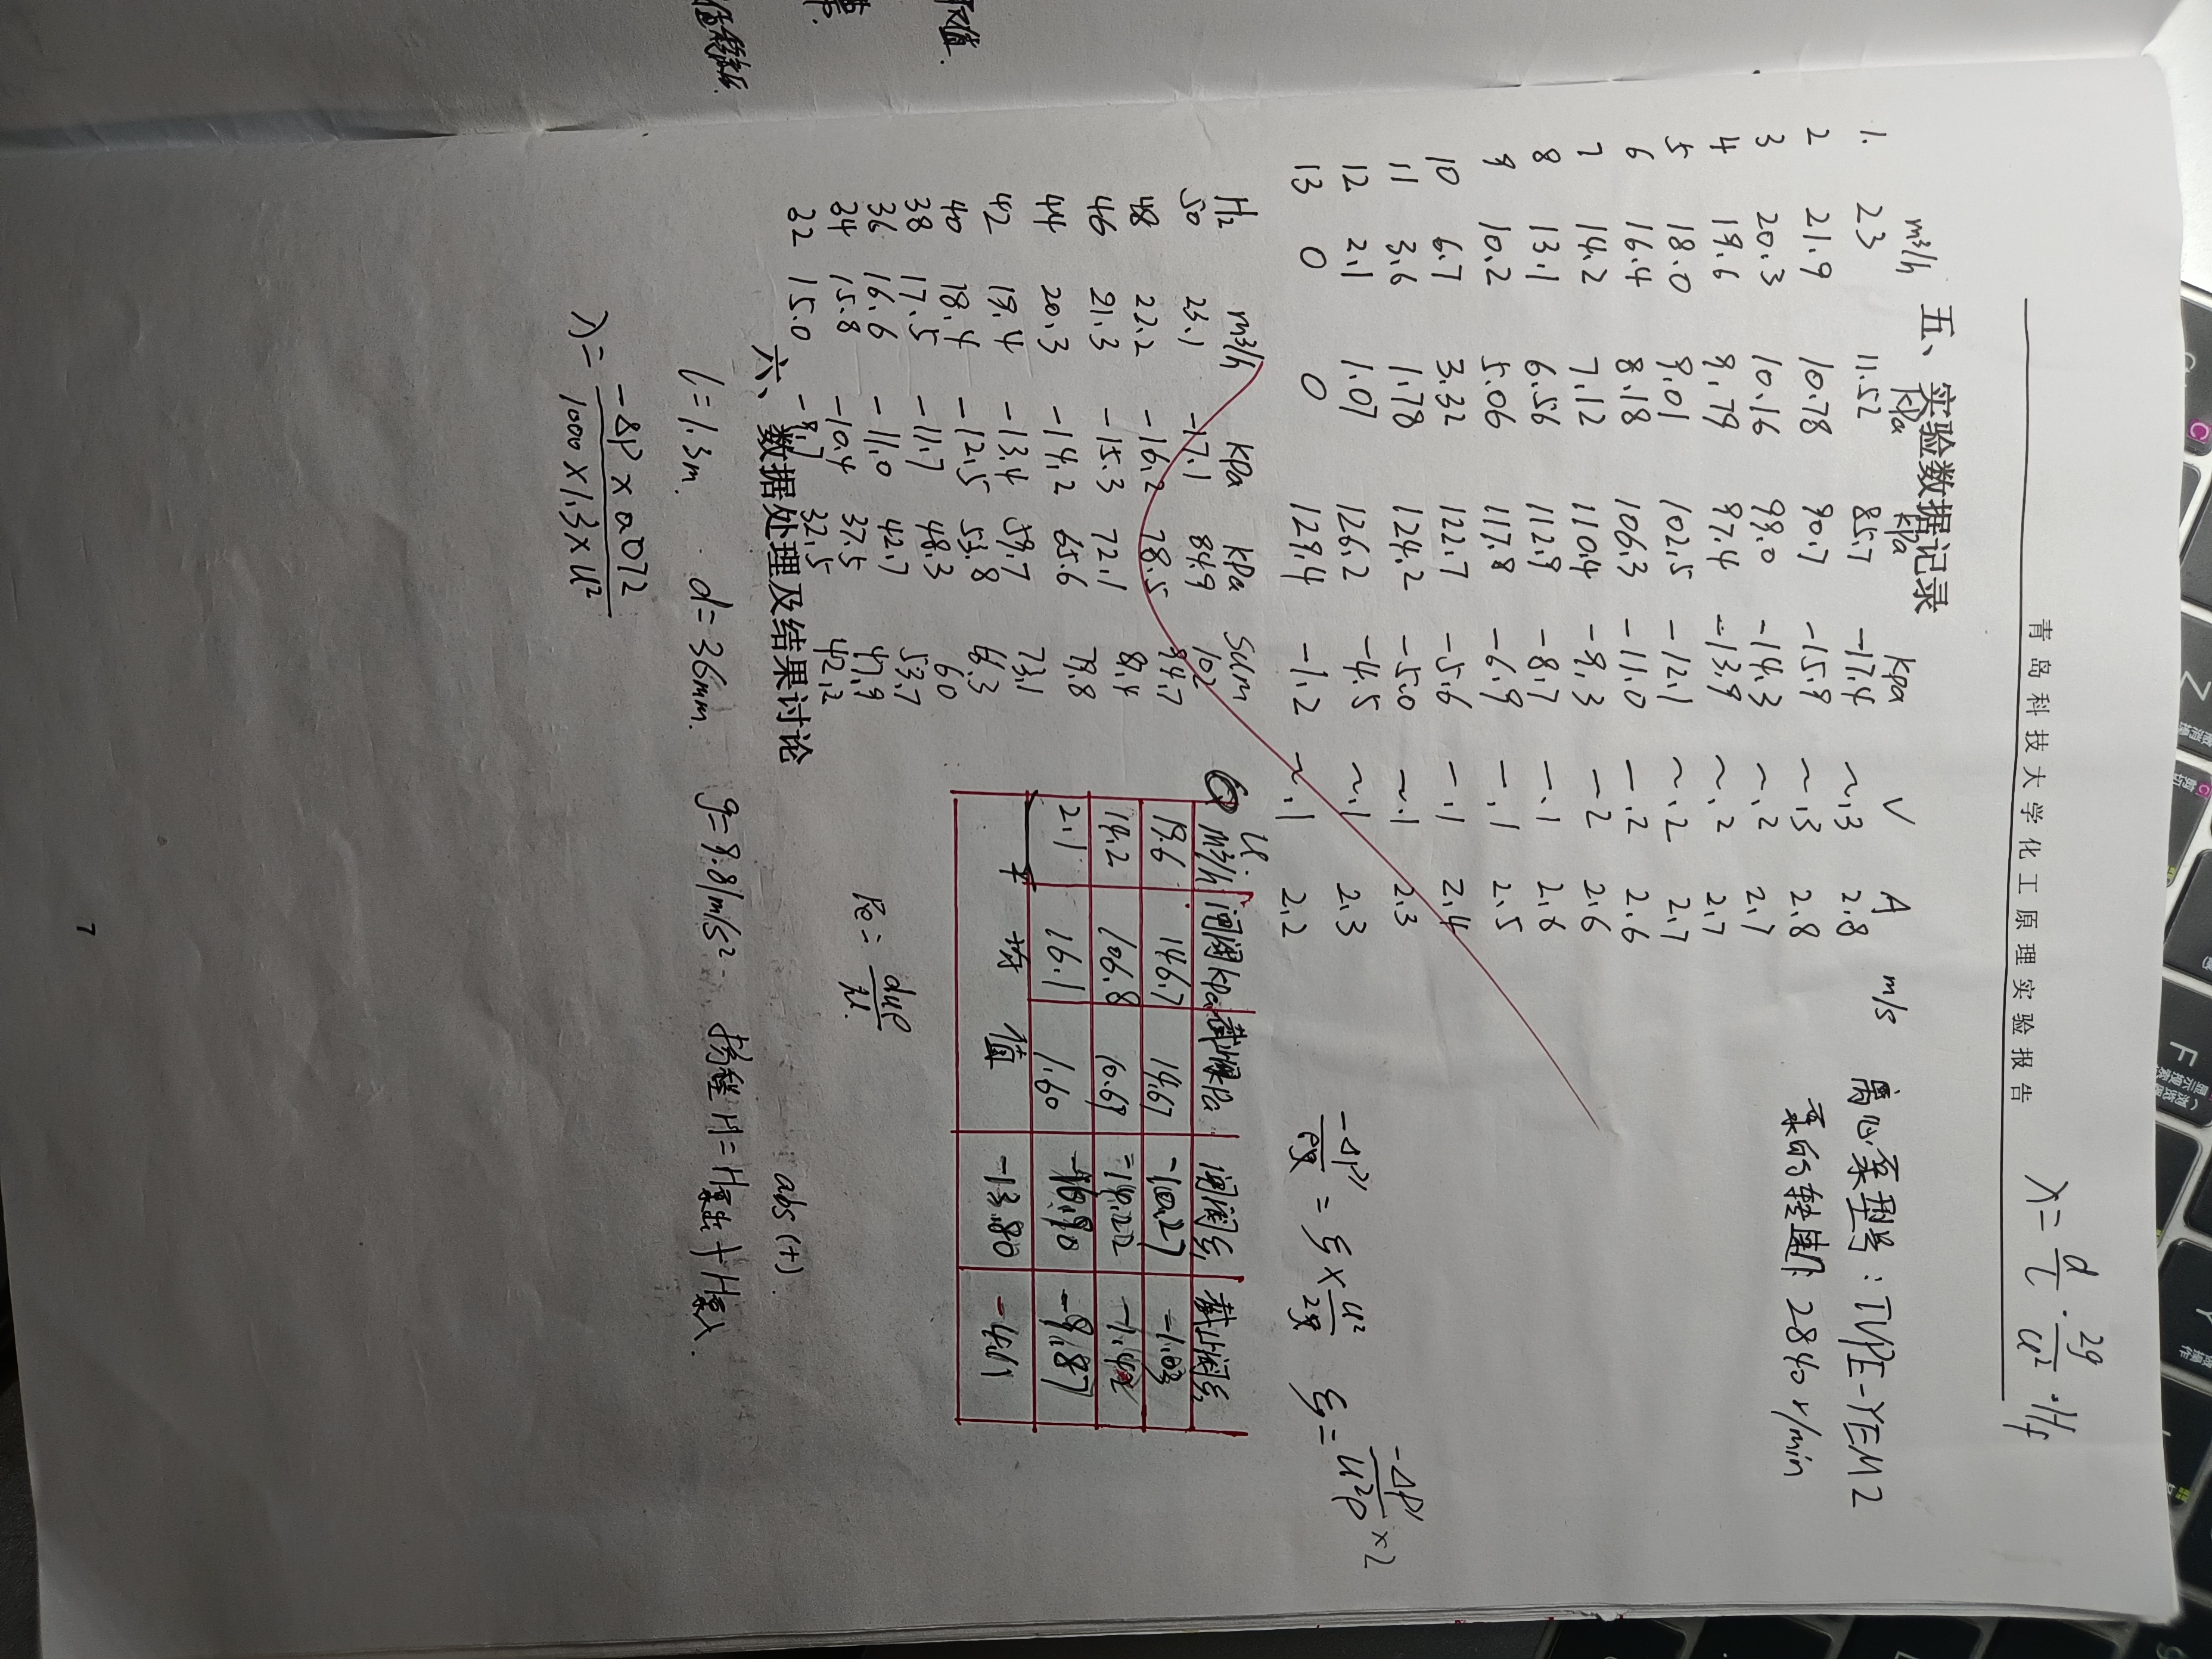 青岛科技大学化工原理实验报告
λ= d/l · 2g/u² · Hf
五、实验数据记录
m³/h kpa kpa kpa V A m/s
离心泵型号：TVPE-YEM2
泵的转速：2840 r/min
1. 23 11.52 85.7 -17.4 ~.3 2.8
2 21.9 10.78 90.7 -15.9 ~.3 2.8
3 20.3 10.16 99.0 -14.3 ~.2 2.7
4 19.6 9.79 97.4 -13.9 ~.2 2.7
5 18.0 9.01 102.5 -12.1 ~.2 2.7
6 16.4 8.18 106.3 -11.0 -.2 2.6
7 14.2 7.12 110.4 -9.3 -.2 2.6
8 13.1 6.56 112.9 -8.7 -.1 2.6
9 10.2 5.06 117.8 -6.9 -.1 2.5
10 6.7 3.32 122.7 -5.6 -.1 2.4
11 3.6 1.78 124.2 -5.0 ~.1 2.3
12 2.1 1.07 126.2 -4.5 ~.1 2.3
13 0 0 129.4 -1.2 ~.1 2.2
-ΔP/ρg = ξ × u²/2g ξ = -ΔP/u²ρ × 2
Hz m³/h kpa kpa Sum
50 23.1 -17.1 84.9 102
48 22.2 -16.2 78.5 94.7
46 21.3 -15.3 72.1 87.4
44 20.3 -14.2 65.6 79.8
42 19.4 -13.4 59.7 73.1
40 18.4 -12.5 53.8 66.3
38 17.5 -11.7 48.3 60
36 16.6 -11.0 42.7 53.7
34 15.8 -10.4 37.5 47.9
32 15.0 -9.7 32.5 42.2
u
m³/h 闸阀kpa 截止阀kpa 闸阀ξ₁ 截止阀ξ₂
19.6 146.7 14.67
14.2 106.8 10.69
2.1 16.1 1.60 -9.87
平均值 -13.80
Re= duρ/μ
六、数据处理及结果讨论
abs(+)
l=1.3m. d=36mm. g=9.81m/s² 扬程H=H泵出+H泵入
λ= -ΔP×0.072 / 1000×1.3×u²
7